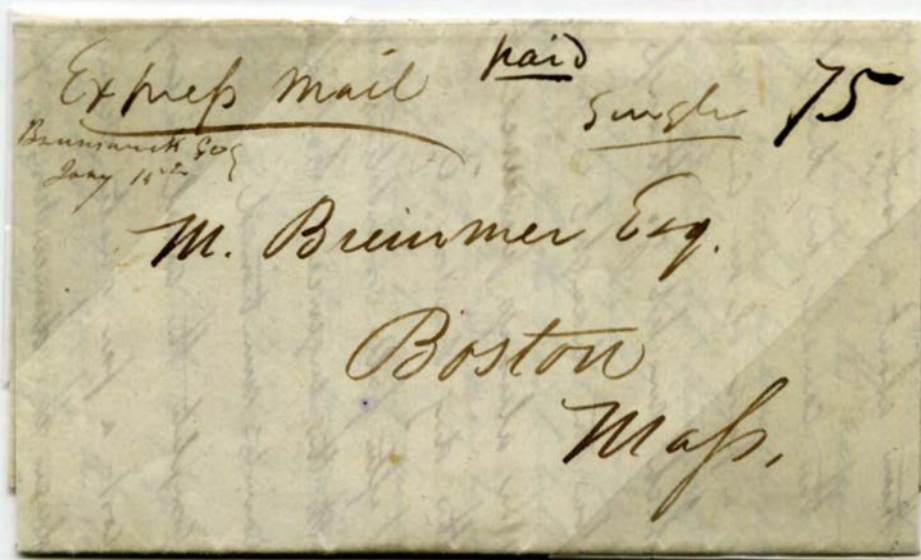 Express Mail
paid
Single 75
Brunswick Geo
Jany 15th
M. Breimmer Esq.
Boston
Mass,